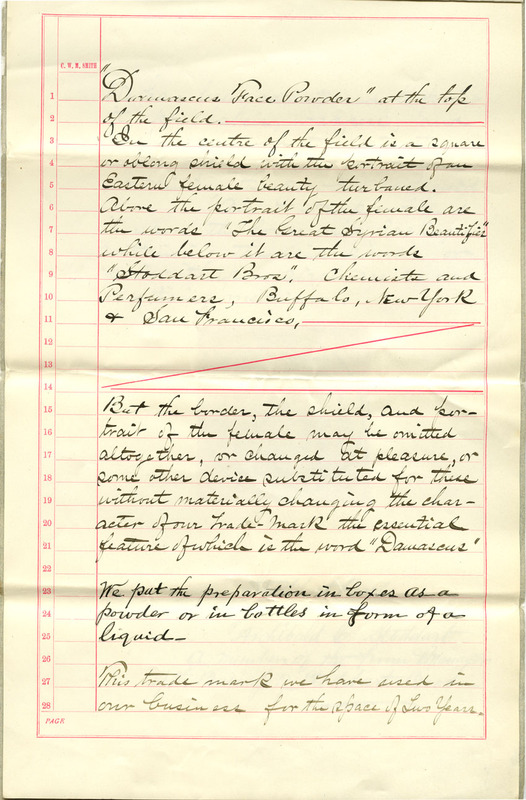 C. W. M. SMITH
1 "Damascus Face Powder" at the top
2 of the field.
3 In the centre of the field is a square
4 or oblong shield with the portrait of an
5 Eastern female beauty turbaned.
6 Above the portrait of the female are
7 the words "The Great Syrian Beautifier"
8 while below it are the words
9 "Stoddart Bros". Chemists and
10 Perfumers, Buffalo, New York
11 & San Francisco,
12
13
14
15 But the border, the shield, and por-
16 trait of the female may be omitted
17 altogether, or changed at pleasure, or
18 some other device substituted for these
19 without materially changing the char-
20 acter of our Trade-Mark the essential
21 feature of which is the word "Damascus"
22
23 We put the preparation in boxes as a
24 powder or in bottles in form of a
25 liquid-
26
27 This trade mark we have used in
28 our business for the space of Two Years.
PAGE